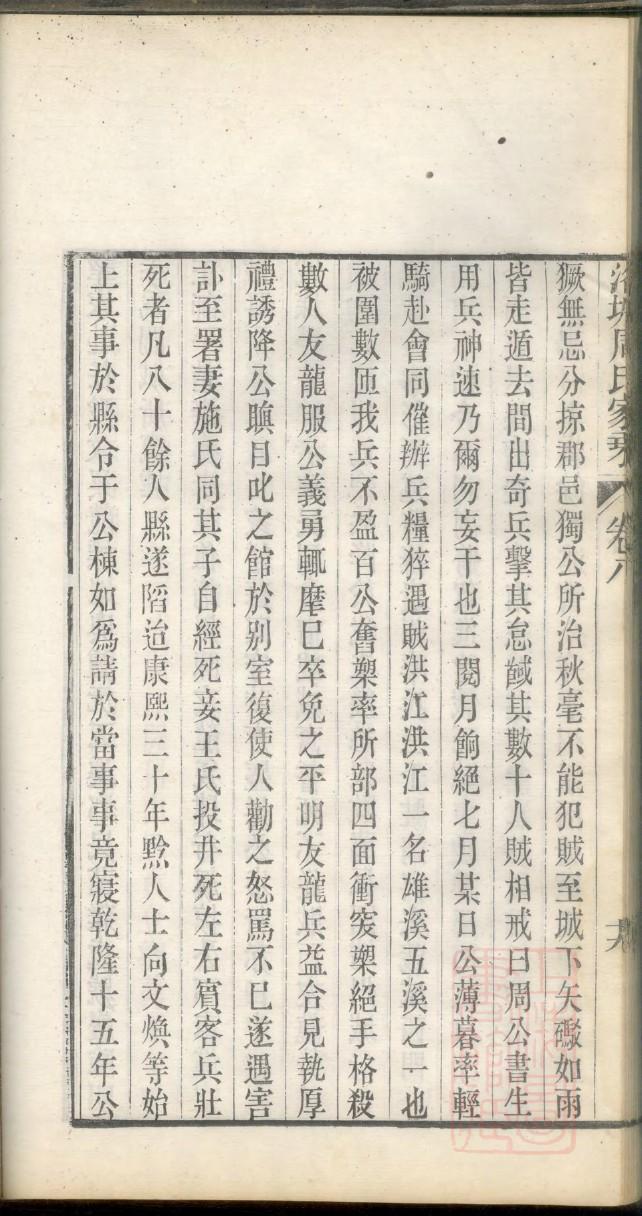 周氏家
卷八
獗無忌分掠郡邑獨公所治秋毫不能犯賊至城下矢礮如雨
皆走遁去間出奇兵擊其怠馘其數十人賊相戒曰周公書生
用兵神速乃爾勿妄干也三閱月餉絕七月某日公薄暮率輕
騎赴會同催辦兵糧猝遇賊洪江洪江一名雄溪五溪之一也
被圍數匝我兵不盈百公奮槊率所部四面衝突槊絕手格殺
數人友龍服公義勇輒麾巳卒免之平明友龍兵益合見執厚
禮誘降公瞋目叱之館於別室復使人勸之怒罵不已遂遇害
訃至署妻施氏同其子自經死妾王氏投井死左右賓客兵壯
死者凡八十餘人縣遂䧟迨康熙三十年黔人士向文煥等始
上其事於縣令于公棟如爲請於當事事竟寢乾隆十五年公